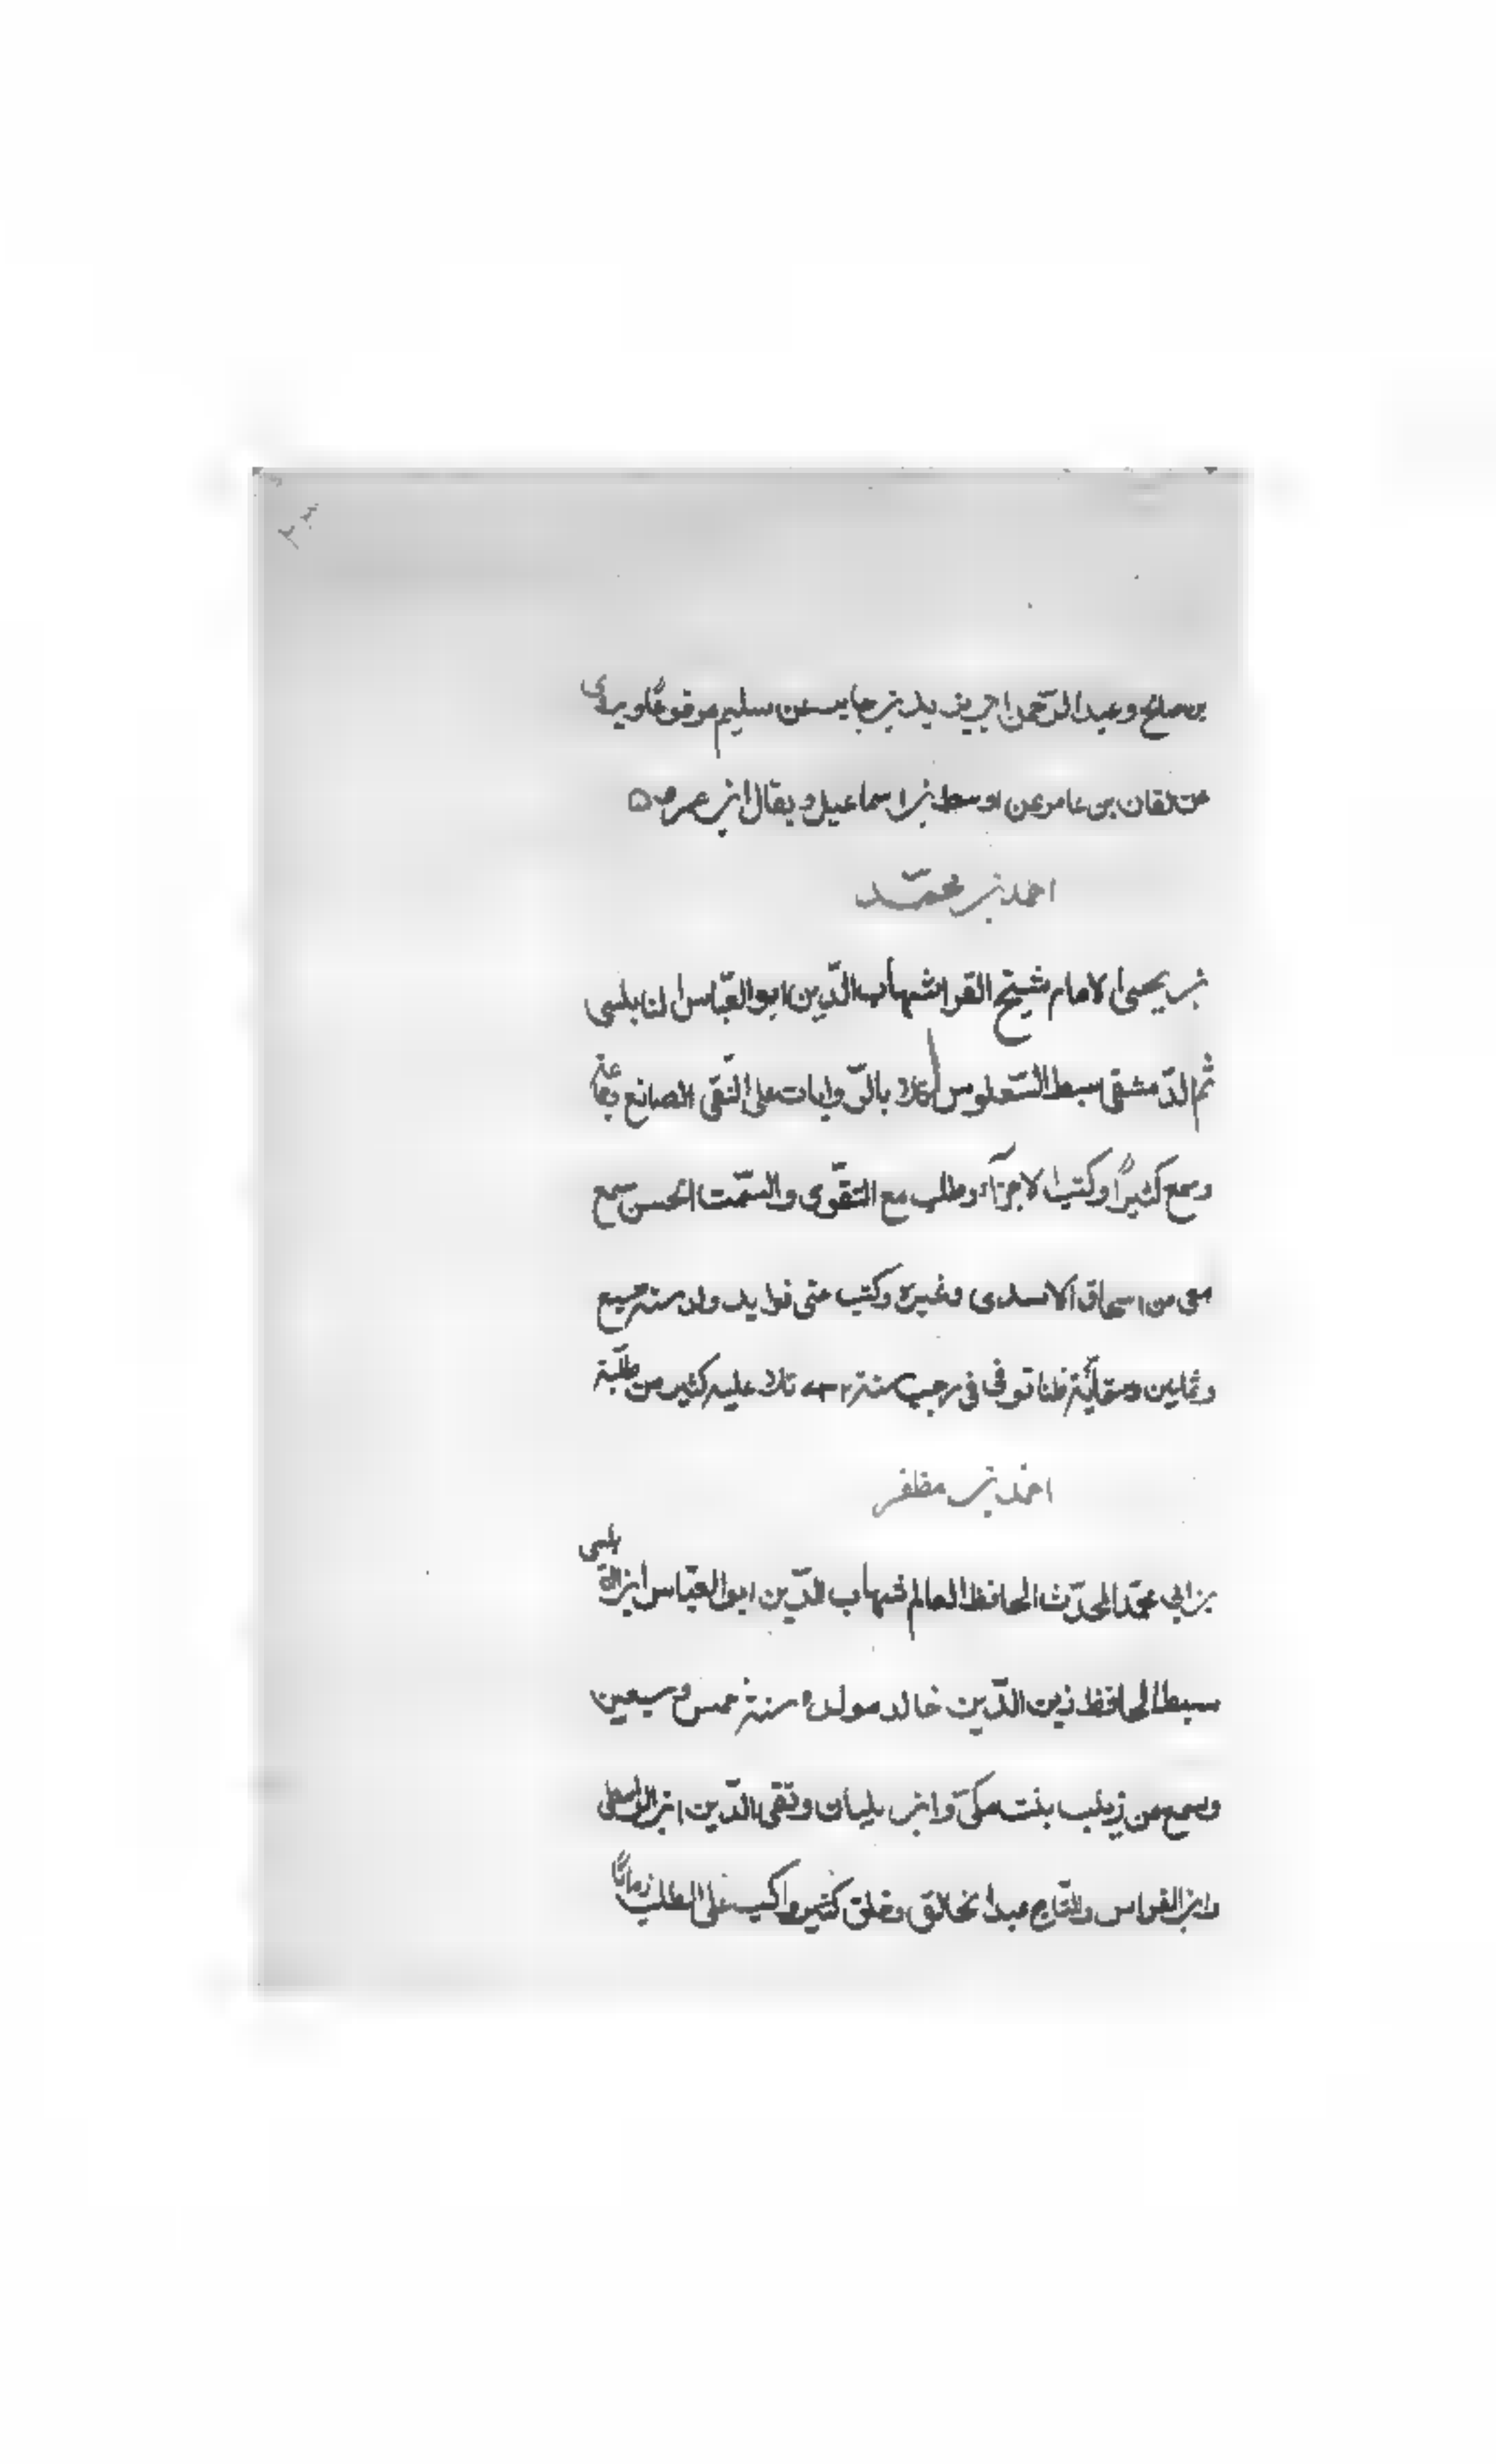 بن صالح وعبد الرحمن بن يزيد بن جابر عن سليم موقوفا ويروى
عن لقمان بن عامر عن اوسط بن اسماعيل ويقال ابن عمرو
احمد بن محمد
بن يحيى الامام شيخ القرا شهاب الدين ابو العباس النابلسى
ثم الدمشقى سبط السعلوس تلا بالروايات على التقى الصائغ وجماعة
وسمع كثيرا وكتب الاجزاء وطلب مع التقوى والسمت الحسن سمع
معى من اسحاق الاسدى وغيره وكتب عنى فوايد ولد سنة سبع
وثمانين وستمائة ظنا توفى فى رجب سنة ٧٣٢ تلا عليه كثير من طلبة
احمد بن مظفر
بن ابي محمد المحدث الحافظ العالم شهاب الدين ابو العباس ابن النابلسى
سبط الحافظ زين الدين خالد مولده سنة خمس وسبعين
وسمع من زينب بنت مكى وابن بلبان وتقى الدين ابن الواسطى
وابن القواس والتاج عبد الخالق وخلق كثير واكب على الطلب زمانا